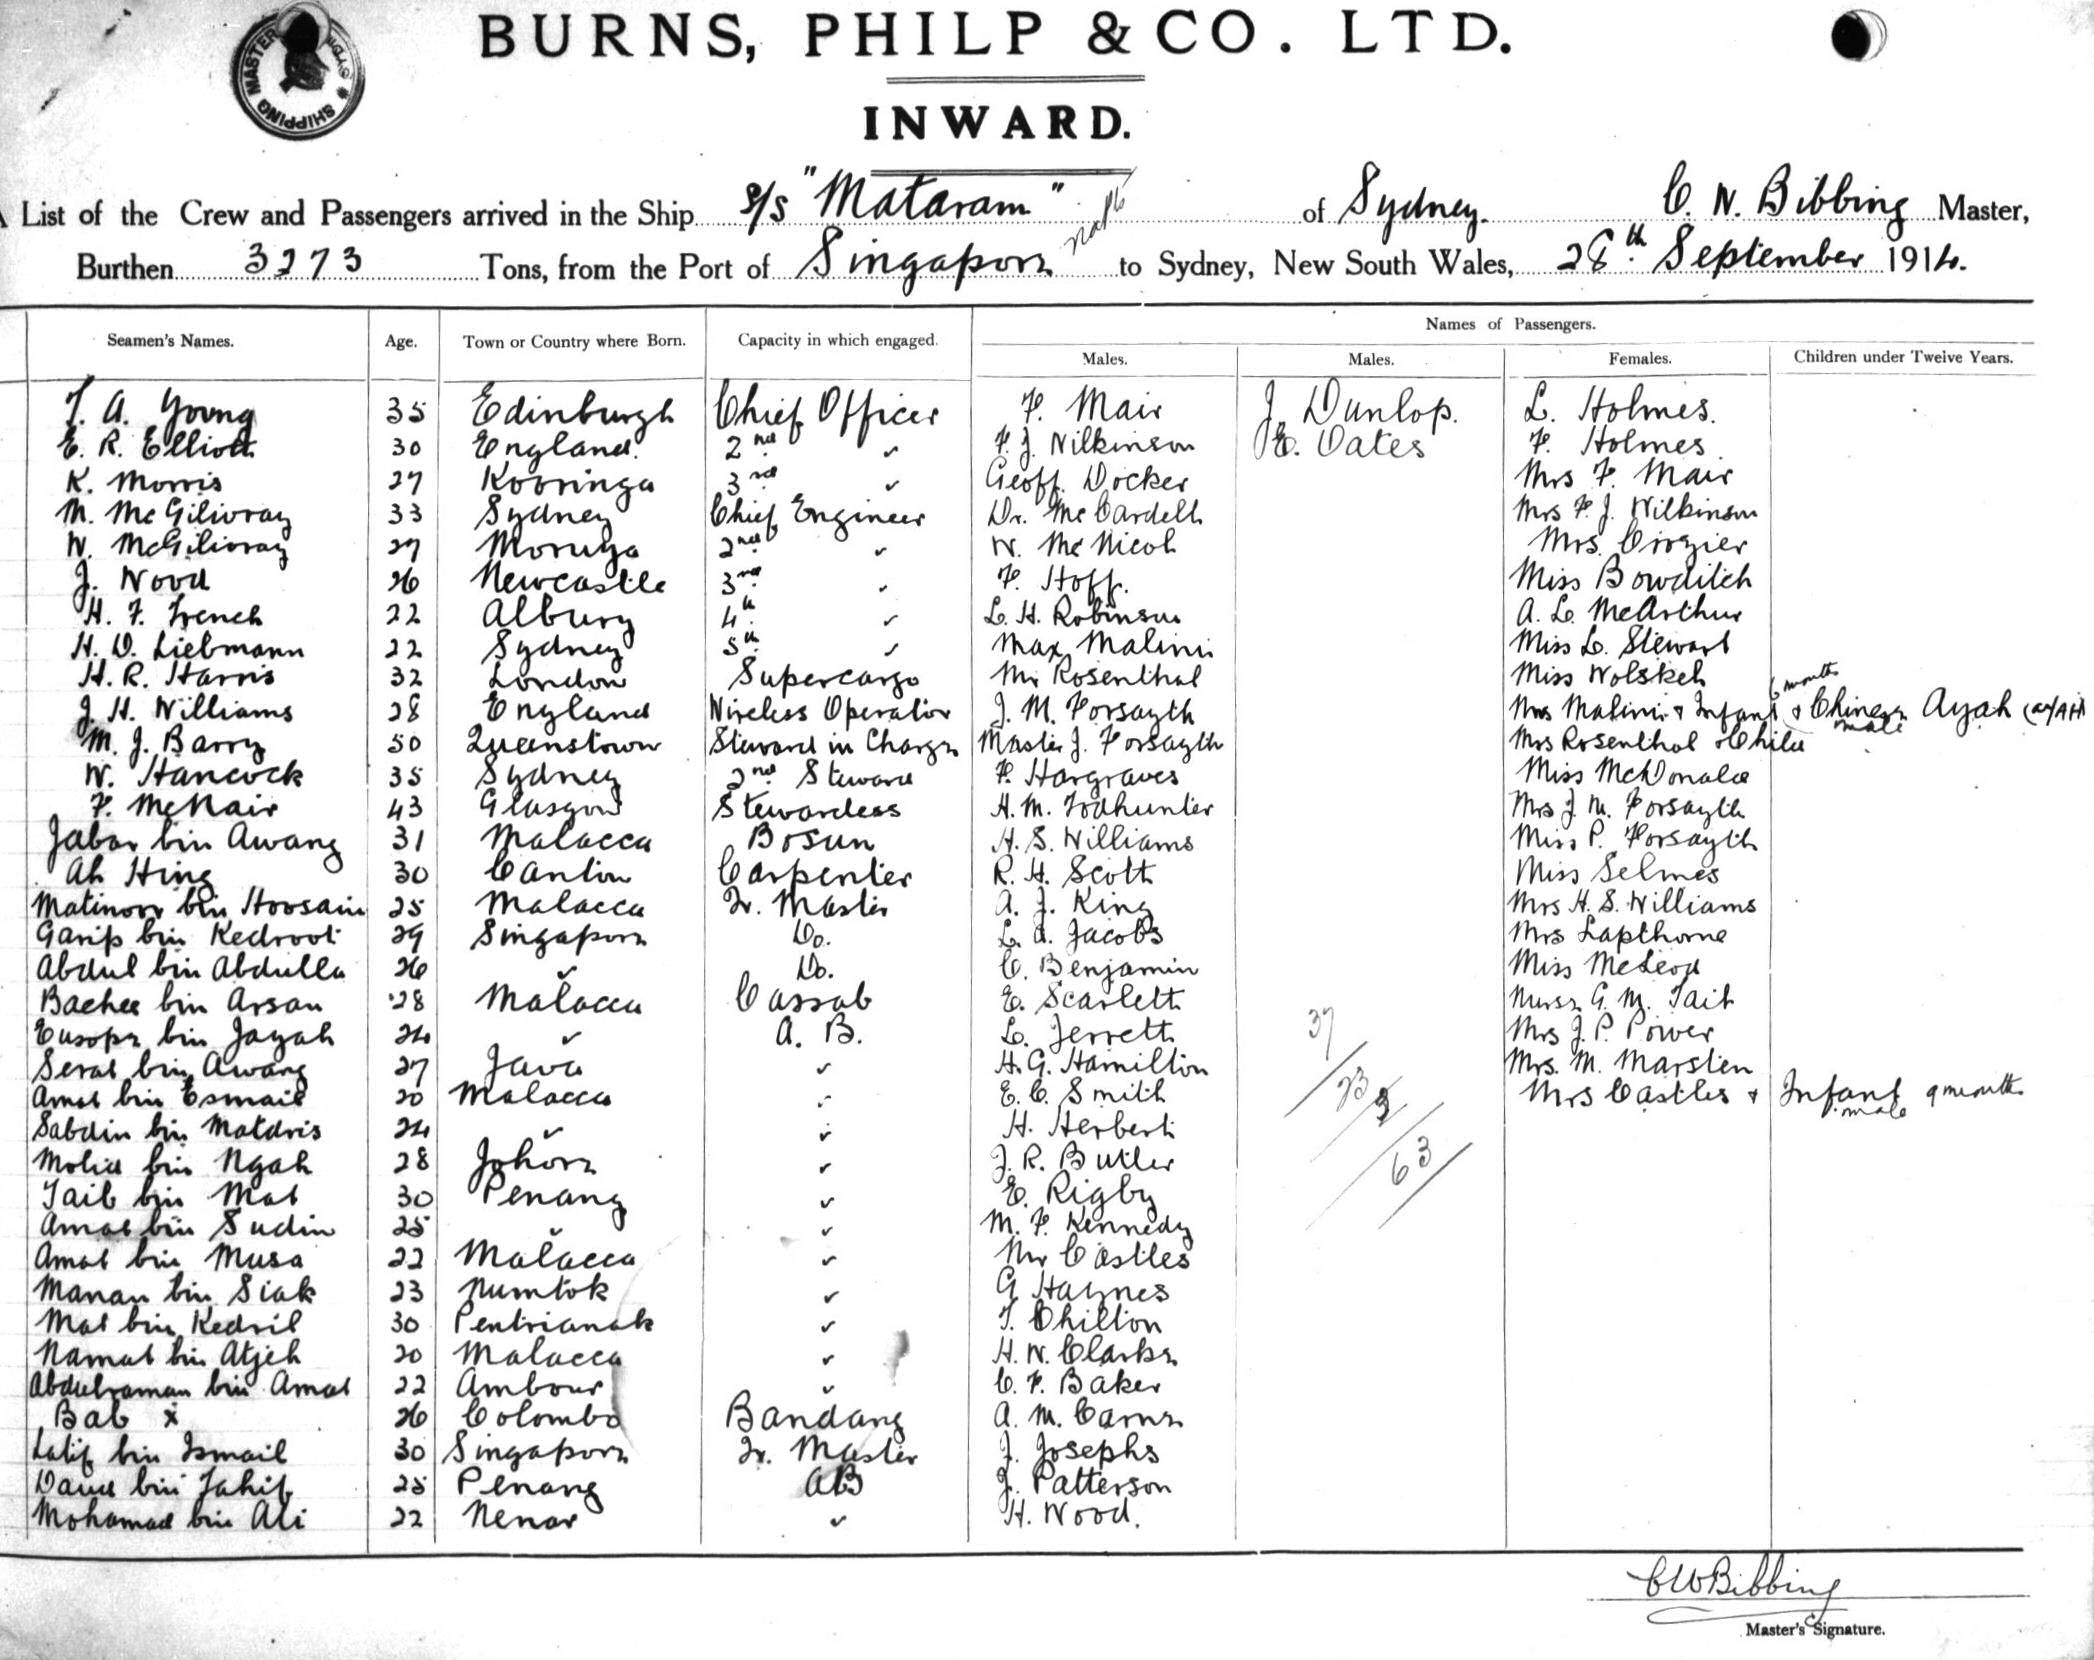 SHIPPING MASTER
BURNS, PHILP & CO. LTD.
INWARD.
List of the Crew and Passengers arrived in the Ship S/S "Mataram" of Sydney. C. W. Bibbing Master,
Burthen 3273 Tons, from the Port of Singapore to Sydney, New South Wales, 28th September 1914.
Names of Passengers.
Seamen's Names. Age. Town or Country where Born. Capacity in which engaged. Males. Males. Females. Children under Twelve Years.
T. A. Young 35 Edinburgh Chief Officer F. Mair J. Dunlop. L. Holmes.
E. R. Elliott 30 England. 2nd " F. J. Wilkinson E. Oates F. Holmes
K. Morris 27 Kooringa 3rd " Geoff. Docker Mrs F. Mair
M. McGilivray 33 Sydney Chief Engineer Dr. McCardell Mrs F. J. Wilkinson
W. McGilivray 27 Moruya 2nd " W. McNicol Mrs. Crozier
J. Wood 26 Newcastle 3rd " F. Hoff. Miss Bowditch
H. F. French 22 Albury 4th " L. H. Robinson A. L. McArthur
H. D. Liebmann 22 Sydney 5th " Max Malini Miss L. Stewart
H. R. Harris 32 London Supercargo Mr Rosenthal Miss Wolskel
6 months
J. H. Williams 28 England Wireless Operator J. M. Forsayth Mrs Malini & Infant & Chinese Ayah
male
M. J. Barry 50 Queenstown Steward in Charge Master J. Forsayth Mrs Rosenthal & Child
W. Hancock 35 Sydney 2nd Steward F. Hargraves Miss McDonald
F. McNair 43 Glasgow Stewardess H. M. Todhunter Mrs J. M. Forsayth
Jabar bin Awang 31 Malacca Bosun H. S. Williams Miss P. Forsayth
Ah Hing 30 Canton Carpenter R. H. Scott Miss Selmes
Matinoor bin Hoosain 25 Malacca Qr. Master A. J. King Mrs H. S. Williams
Garip bin Kedroot 29 Singapore Do. L. A. Jacobs Mrs Lapthorne
Abdul bin Abdulla 26 " Do. C. Benjamin Miss McLeod
Bachee bin Arsan 28 Malacca Cassab E. Scarlett Nurse G. M. Tait
Eusope bin Jayah 24 " A. B. L. Jerrett Mrs J. P. Power
Serat bin Awang 27 Java " H. G. Hamilton Mrs. M. Marsden
Amat bin Esmail 20 Malacca " E. C. Smith Mrs Castles & Infant 9 months
male
Sabdin bin Matdris 24 " " H. Herbert
Molid bin Ngah 28 Johore " J. R. Butler
Taib bin Mat 30 Penang " E. Rigby
Amat bin Sudin 25 " " M. F. Kennedy
Amat bin Musa 22 Malacca " Mr Castles
Manan bin Siak 23 Numtok " G Haynes
Mat bin Kedril 30 Pentrianak " T. Chilton
Namat bin Atjeh 20 Malacca " H. W. Clarke
Abdulraman bin Amat 22 Ambour " C. F. Baker
Bab x 26 Colombo Bandang A. M. Carne
Latif bin Ismail 30 Singapore Qr. Master J. Josephs
Daud bin Tahib 25 Penang AB J. Patterson
Mohamad bin Ali 22 Nenar " H. Wood.
37
23
3
63
C W Bibbing
Master's Signature.